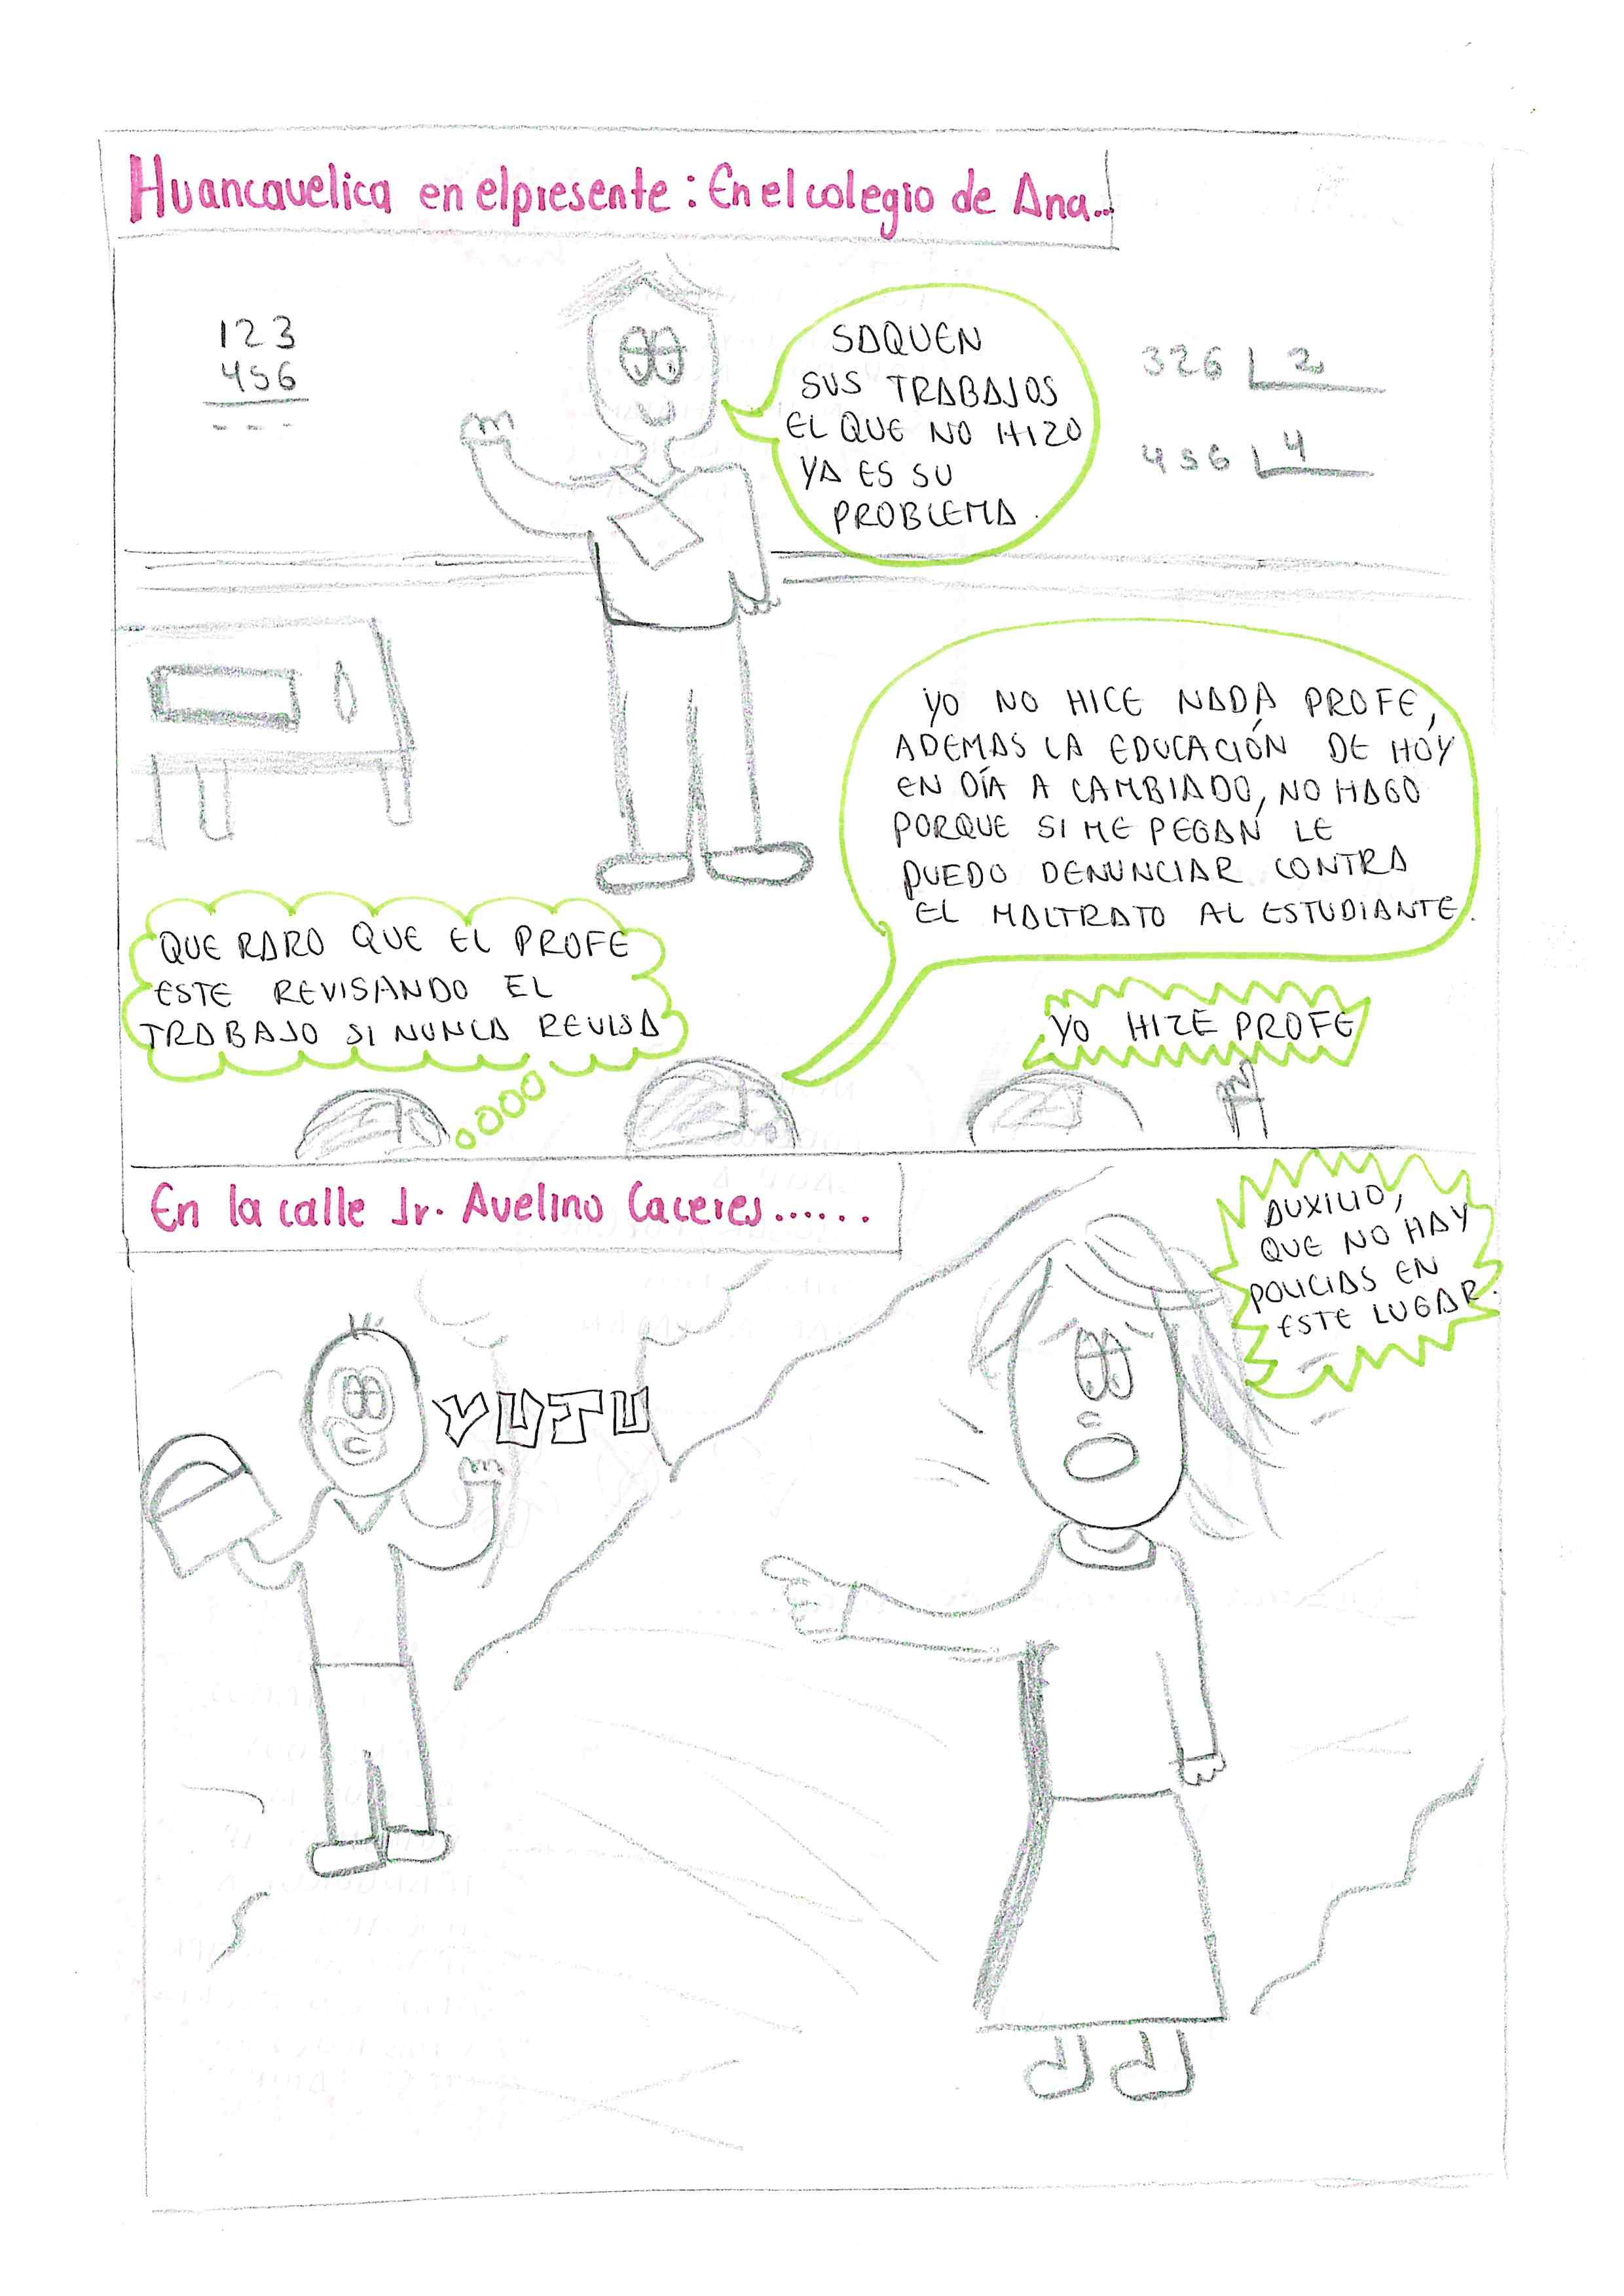 Huancavelica en elpresente: En el colegio de Ana...
123
456
---
SAQUEN
SUS TRABAJOS
EL QUE NO HIZO
YA ES SU
PROBLEMA.
326 2
456 4
YO NO HICE NADA PROFE,
ADEMAS LA EDUCACIÓN DE HOY
EN DÍA A CAMBIADO, NO HAGO
PORQUE SI ME PEGAN LE
PUEDO DENUNCIAR CONTRA
EL MALTRATO AL ESTUDIANTE.
QUE RARO QUE EL PROFE
ESTE REVISANDO EL
TRABAJO SI NUNCA REVISA
YO HIZE PROFE
En la calle Jr. Avelino Caceres......
AUXILIO,
QUE NO HAY
POLICIAS EN
ESTE LUGAR.
YUJU